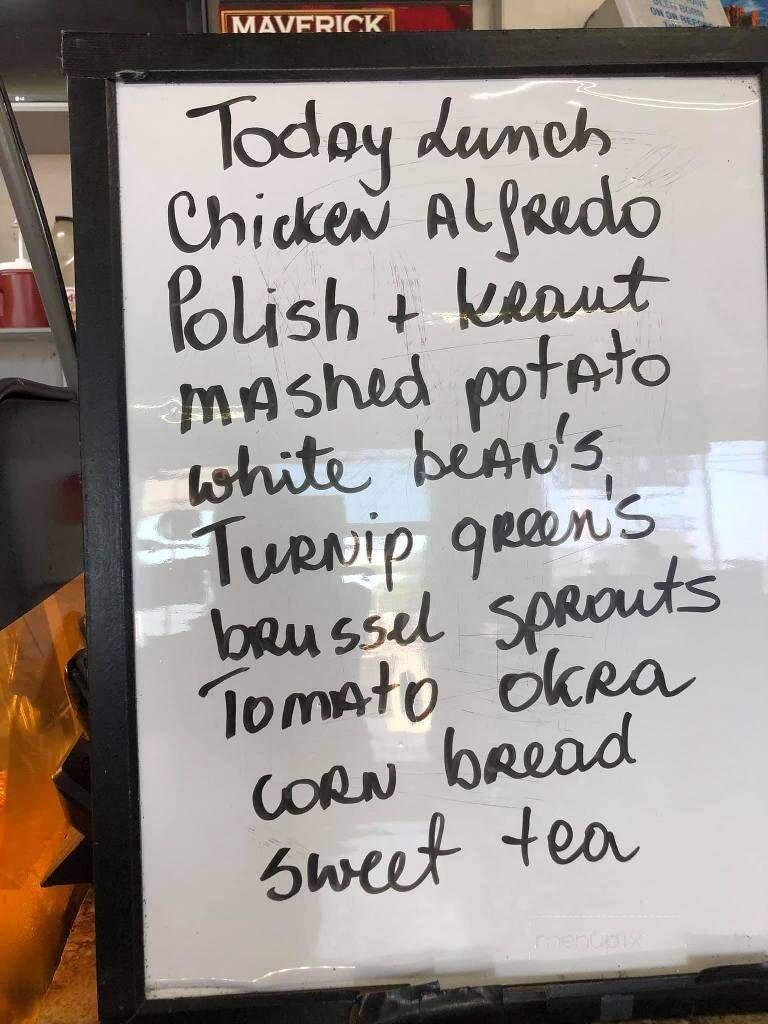 MAVERICK
Today Lunch
Chicken Alfredo
Polish + kraut
mashed potato
white bean's
Turnip green's
brussel sprouts
Tomato okra
corn bread
sweet tea
menupix